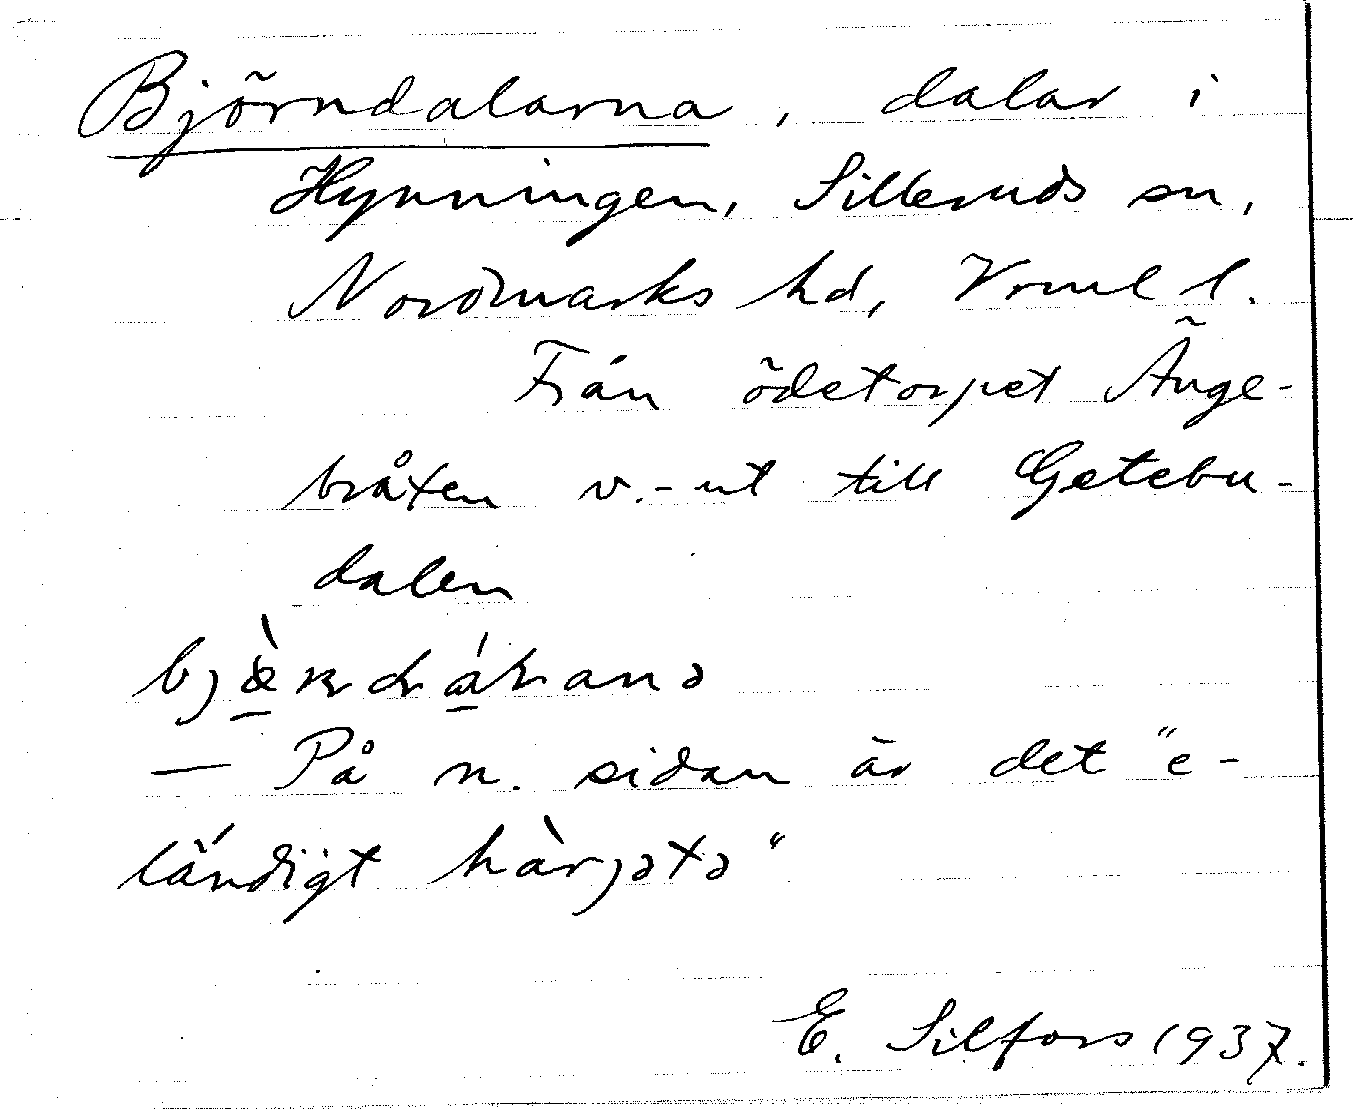 Björndalarna, dalar i
Hynningen, Silleruds sn,
Nordmarks hd, Vrml l.
Från ödetorpet Änge-
bråten v.-ut till Getebu-
dalen
— På n. sidan är det "e-
ländigt hàrjətə"
E. Silfors 1937.